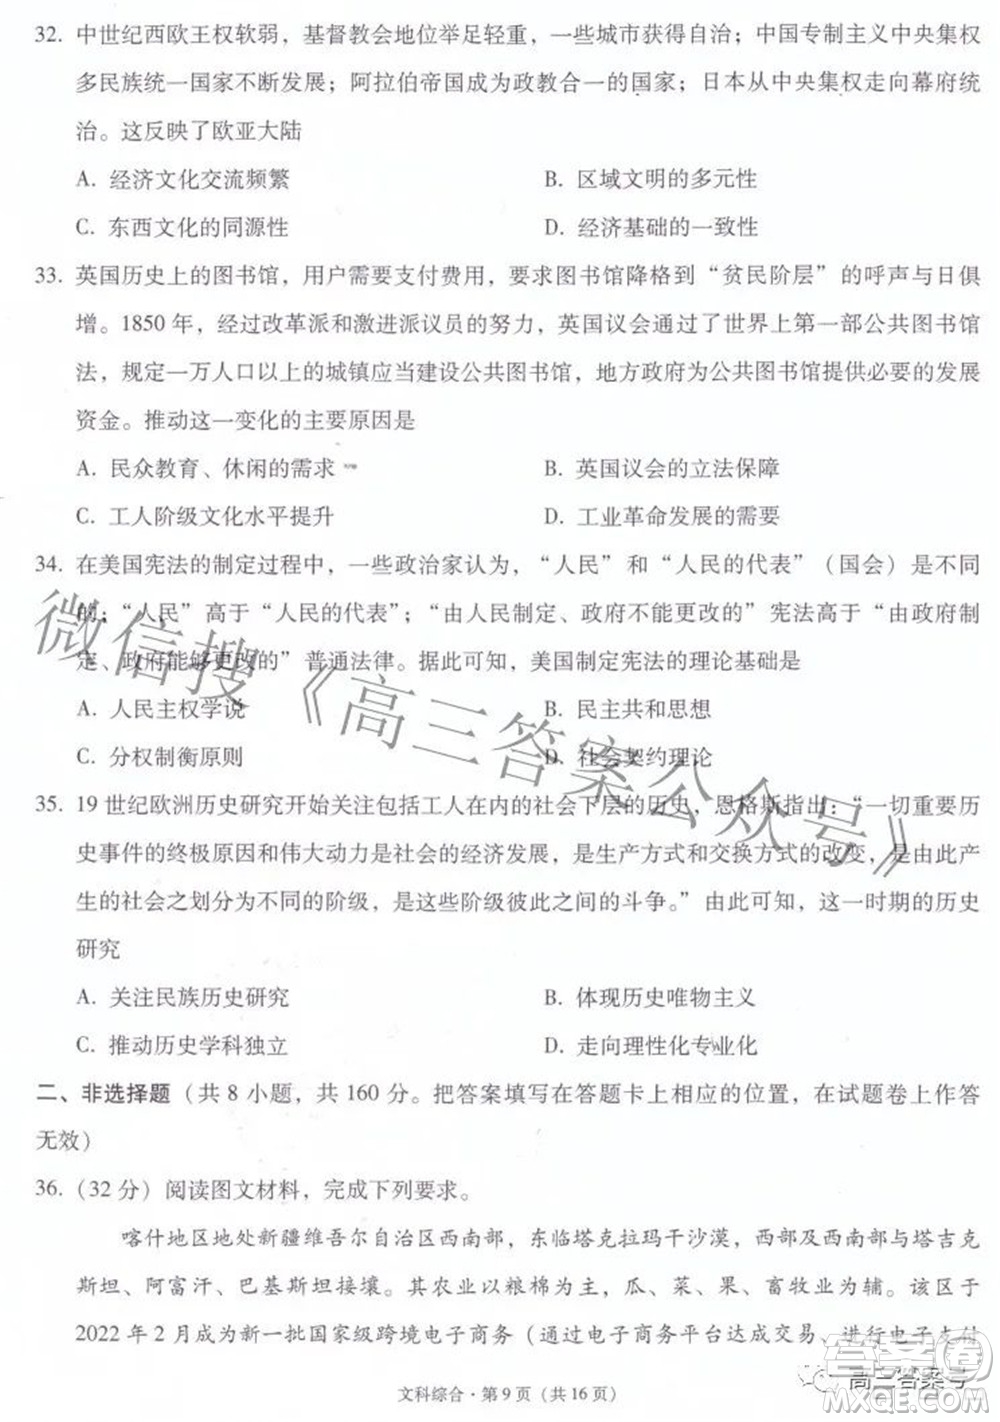 32. 中世纪西欧王权软弱，基督教会地位举足轻重，一些城市获得自治；中国专制主义中央集权
多民族统一国家不断发展；阿拉伯帝国成为政教合一的国家；日本从中央集权走向幕府统
治。这反映了欧亚大陆
A. 经济文化交流频繁 B. 区域文明的多元性
C. 东西文化的同源性 D. 经济基础的一致性
33. 英国历史上的图书馆，用户需要支付费用，要求图书馆降格到“贫民阶层”的呼声与日俱
增。1850 年，经过改革派和激进派议员的努力，英国议会通过了世界上第一部公共图书馆
法，规定一万人口以上的城镇应当建设公共图书馆，地方政府为公共图书馆提供必要的发展
资金。推动这一变化的主要原因是
A. 民众教育、休闲的需求 B. 英国议会的立法保障
C. 工人阶级文化水平提升 D. 工业革命发展的需要
34. 在美国宪法的制定过程中，一些政治家认为，“人民”和“人民的代表”（国会）是不同
的；“人民”高于“人民的代表”；“由人民制定、政府不能更改的”宪法高于“由政府制
定、政府能够更改的”普通法律。据此可知，美国制定宪法的理论基础是
A. 人民主权学说 B. 民主共和思想
C. 分权制衡原则 D. 社会契约理论
35. 19 世纪欧洲历史研究开始关注包括工人在内的社会下层的历史，恩格斯指出：“一切重要历
史事件的终极原因和伟大动力是社会的经济发展，是生产方式和交换方式的改变，是由此产
生的社会之划分为不同的阶级，是这些阶级彼此之间的斗争。”由此可知，这一时期的历史
研究
A. 关注民族历史研究 B. 体现历史唯物主义
C. 推动历史学科独立 D. 走向理性化专业化
二、非选择题（共 8 小题，共 160 分。把答案填写在答题卡上相应的位置，在试题卷上作答
无效）
36.（32 分）阅读图文材料，完成下列要求。
喀什地区地处新疆维吾尔自治区西南部，东临塔克拉玛干沙漠，西部及西南部与塔吉克
斯坦、阿富汗、巴基斯坦接壤。其农业以粮棉为主，瓜、菜、果、畜牧业为辅。该区于
2022 年 2 月成为新一批国家级跨境电子商务（通过电子商务平台达成交易、进行电子支付
文科综合·第 9 页（共 16 页）
微信搜《高三答案公众号》
高三答案号
答案圈
MXQE.COM